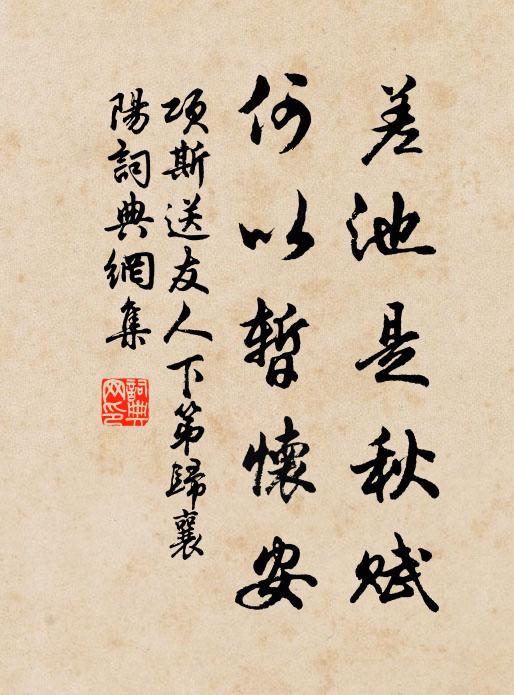 差池是秋賦
何以暫懷安
項斯送友人下第歸襄
陽詞典網集
詞典
网印